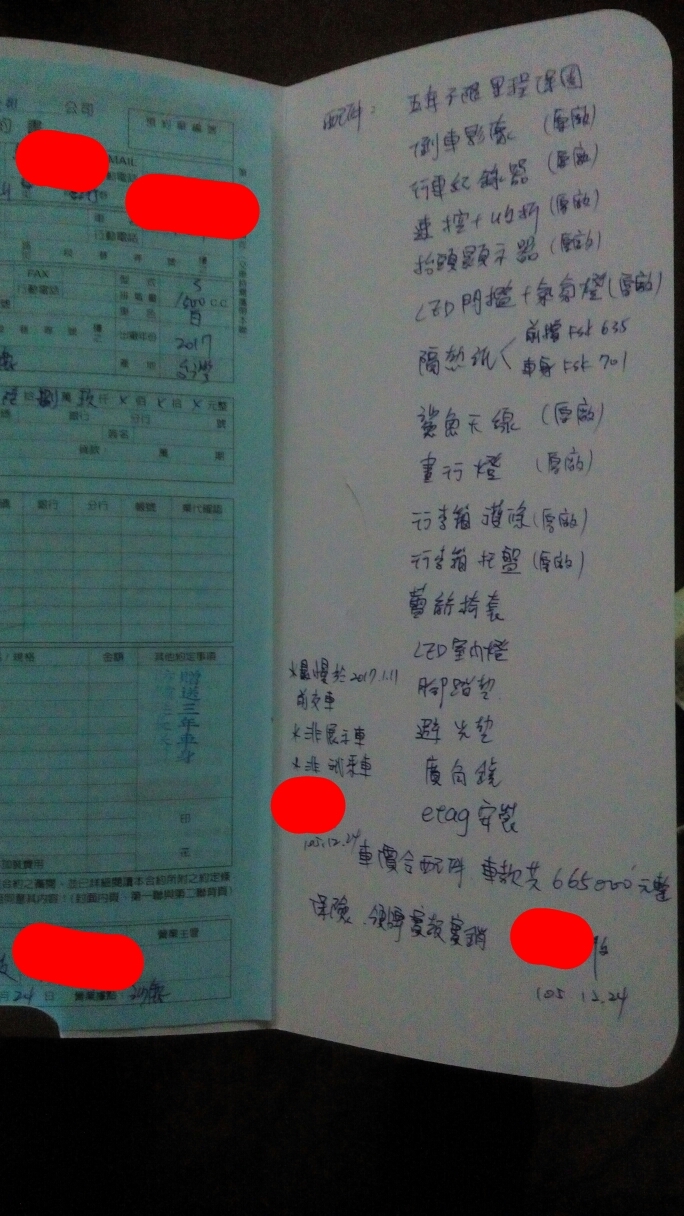 公司
約書
預約單編號
MAIL
行動電話
FAX
行動電話
型式 5
排氣量 1500 C.C.
白
出廠年份 2017
產地 台灣
拾 萬 仟 X 佰 X 拾 X 元整
銀行 分行 號
簽名
銀行 分行 帳號
/ 規格 金額 其他約定事項
贈送三年車身
印
花
營業主管
月 24 日 營業據點:
配件: 五年不限里程保固
倒車影像 (原廠)
行車紀錄器 (原廠)
速控+ (原廠)
抬頭顯示器 (原廠)
LED門檻+氣氛燈 (原廠)
隔熱紙 < 前擋 FSK 635
車身 FSK 701
鯊魚天線 (原廠)
晝行燈 (原廠)
行李箱護條 (原廠)
行李箱托盤 (原廠)
椅套
LED室內燈
腳踏墊
避光墊
廣角鏡
etag 安裝
*最慢於2017.1.11
前交車
*非展示車
*非試乘車
105.12.24
車價含配件 車款共 665000元整
保險、領牌實報實銷
105.12.24